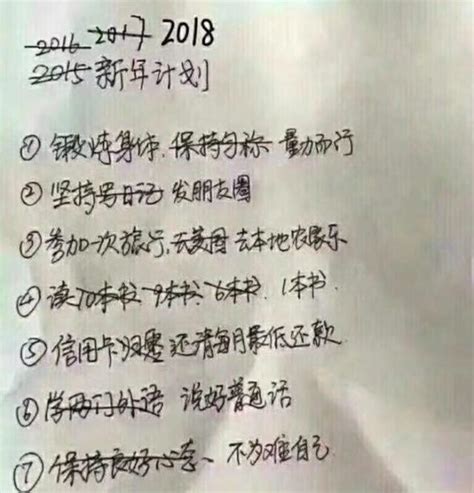 2016 2017 2018
2015新年计划
①锻炼身体.保持匀称 量力而行
②坚持写日记 发朋友圈
③参加一次旅行,去美国 去本地农家乐
④读70本书 9本书 6本书.1本书.
⑤信用卡归零还清每月最低还款.
⑥学两门外语 说好普通话
⑦保持良好心态、不为难自己.